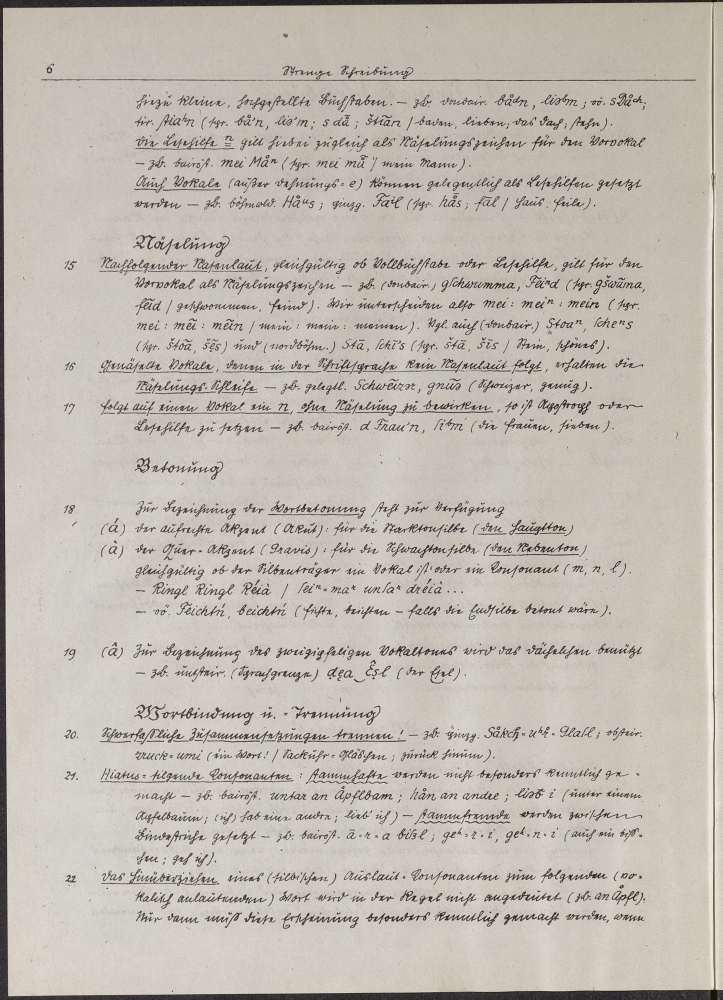 6 Strenge Schreibung
hiezu kleine, hochgestellte Buchstaben. — zb. donbair. bådn, liabm; oö. s Dåch;
tir. stiahn (spr. bå'n, lia'm; s då; štian / baden, lieben; das Dach; stehn).
Die Lesehilfe n gilt hiebei zugleich als Näselungszeichen für den Vorvokal
— zb. bairöst. mei Mån (spr. mei må / mein Mann).
Auch Vokale (außer Dehnungs-e) können gelegentlich als Lesehilfen gesetzt
werden — zb. böhmwld. Håus; pinzg. Fail (spr. hås; fal / Haus. Feile).
Näselung
15 Nachfolgender Nasenlaut, gleichgültig ob Vollbuchstabe oder Lesehilfe, gilt für den
Vorvokal als Näselungszeichen — zb. (donbair.) gschwumma, Feind (spr. gšwuma,
feid / geschwommen, Feind). Wir unterscheiden also mei : mein : mein (spr.
mei : mei : mein / mein : mein : meinen). Vgl. auch (donbair.) Stoan, schens
(spr. štoa, šes) und (nordböhm.) Sta, schis (spr. šta, šis / Stein, schönes).
16 Genäselte Vokale, denen in der Schriftsprache kein Nasenlaut folgt, erhalten die
Näselungs-Schleife — zb. gelegtl. Schweizn, gnua (Schweizer, genug).
17 Folgt auf einen Vokal ein n, ohne Näselung zu bewirken, so ist Apostroph oder
Lesehilfe zu setzen — zb. bairöst. d Frau'n, sibm (die Frauen, sieben).
Betonung
18 Zur Bezeichnung der Wortbetonung steht zur Verfügung
(á) der aufrechte Akzent (Akut): für die Starktonsilbe (den Hauptton)
(à) der Quer-Akzent (Gravis): für die Schwachtonsilbe (den Nebenton)
gleichgültig ob der Silbenträger ein Vokal ist oder ein Konsonant (m, n, l).
— Ringl Ringl Réià / sein-mar unsar dréià...
— oö. Feichtń, beichtń (Fichte, beichten — falls die Endsilbe betont wäre).
19 (â) Zur Bezeichnung des zweigipfeligen Vokaltones wird das Dächelchen benützt
— zb. untsteir. (Sprachgrenze) dea Êsl (der Esel).
Wortbindung u. -Trennung
20. Schwerfaßliche Zusammensetzungen trennen! — zb. pinzg. Såkch-uhr-Glasl; obsteir.
zruck-umi (ein Wort! / Sackuhr-Gläschen; zurück hinum).
21. Hiatus-tilgende Konsonanten: stammhafte werden nicht besonders kenntlich ge-
macht — zb. bairöst. untar an Åpflbam; hån an andee; liab i (unter einem
Apfelbaum; (ich) hab eine andre; lieb' ich) — stammfremde werden zwischen
Bindestriche gesetzt — zb. bairöst. a-r-a bißl; geh-r-i, geh-n-i (auch ein biß-
chen; geh ich).
22 Das Hinüberziehen eines (silbischen) Auslaut-Konsonanten zum folgenden (vo-
kalisch anlautenden) Wort wird in der Regel nicht angedeutet (zb. an Åpfl).
Nur dann muß diese Erscheinung besonders kenntlich gemacht werden, wenn